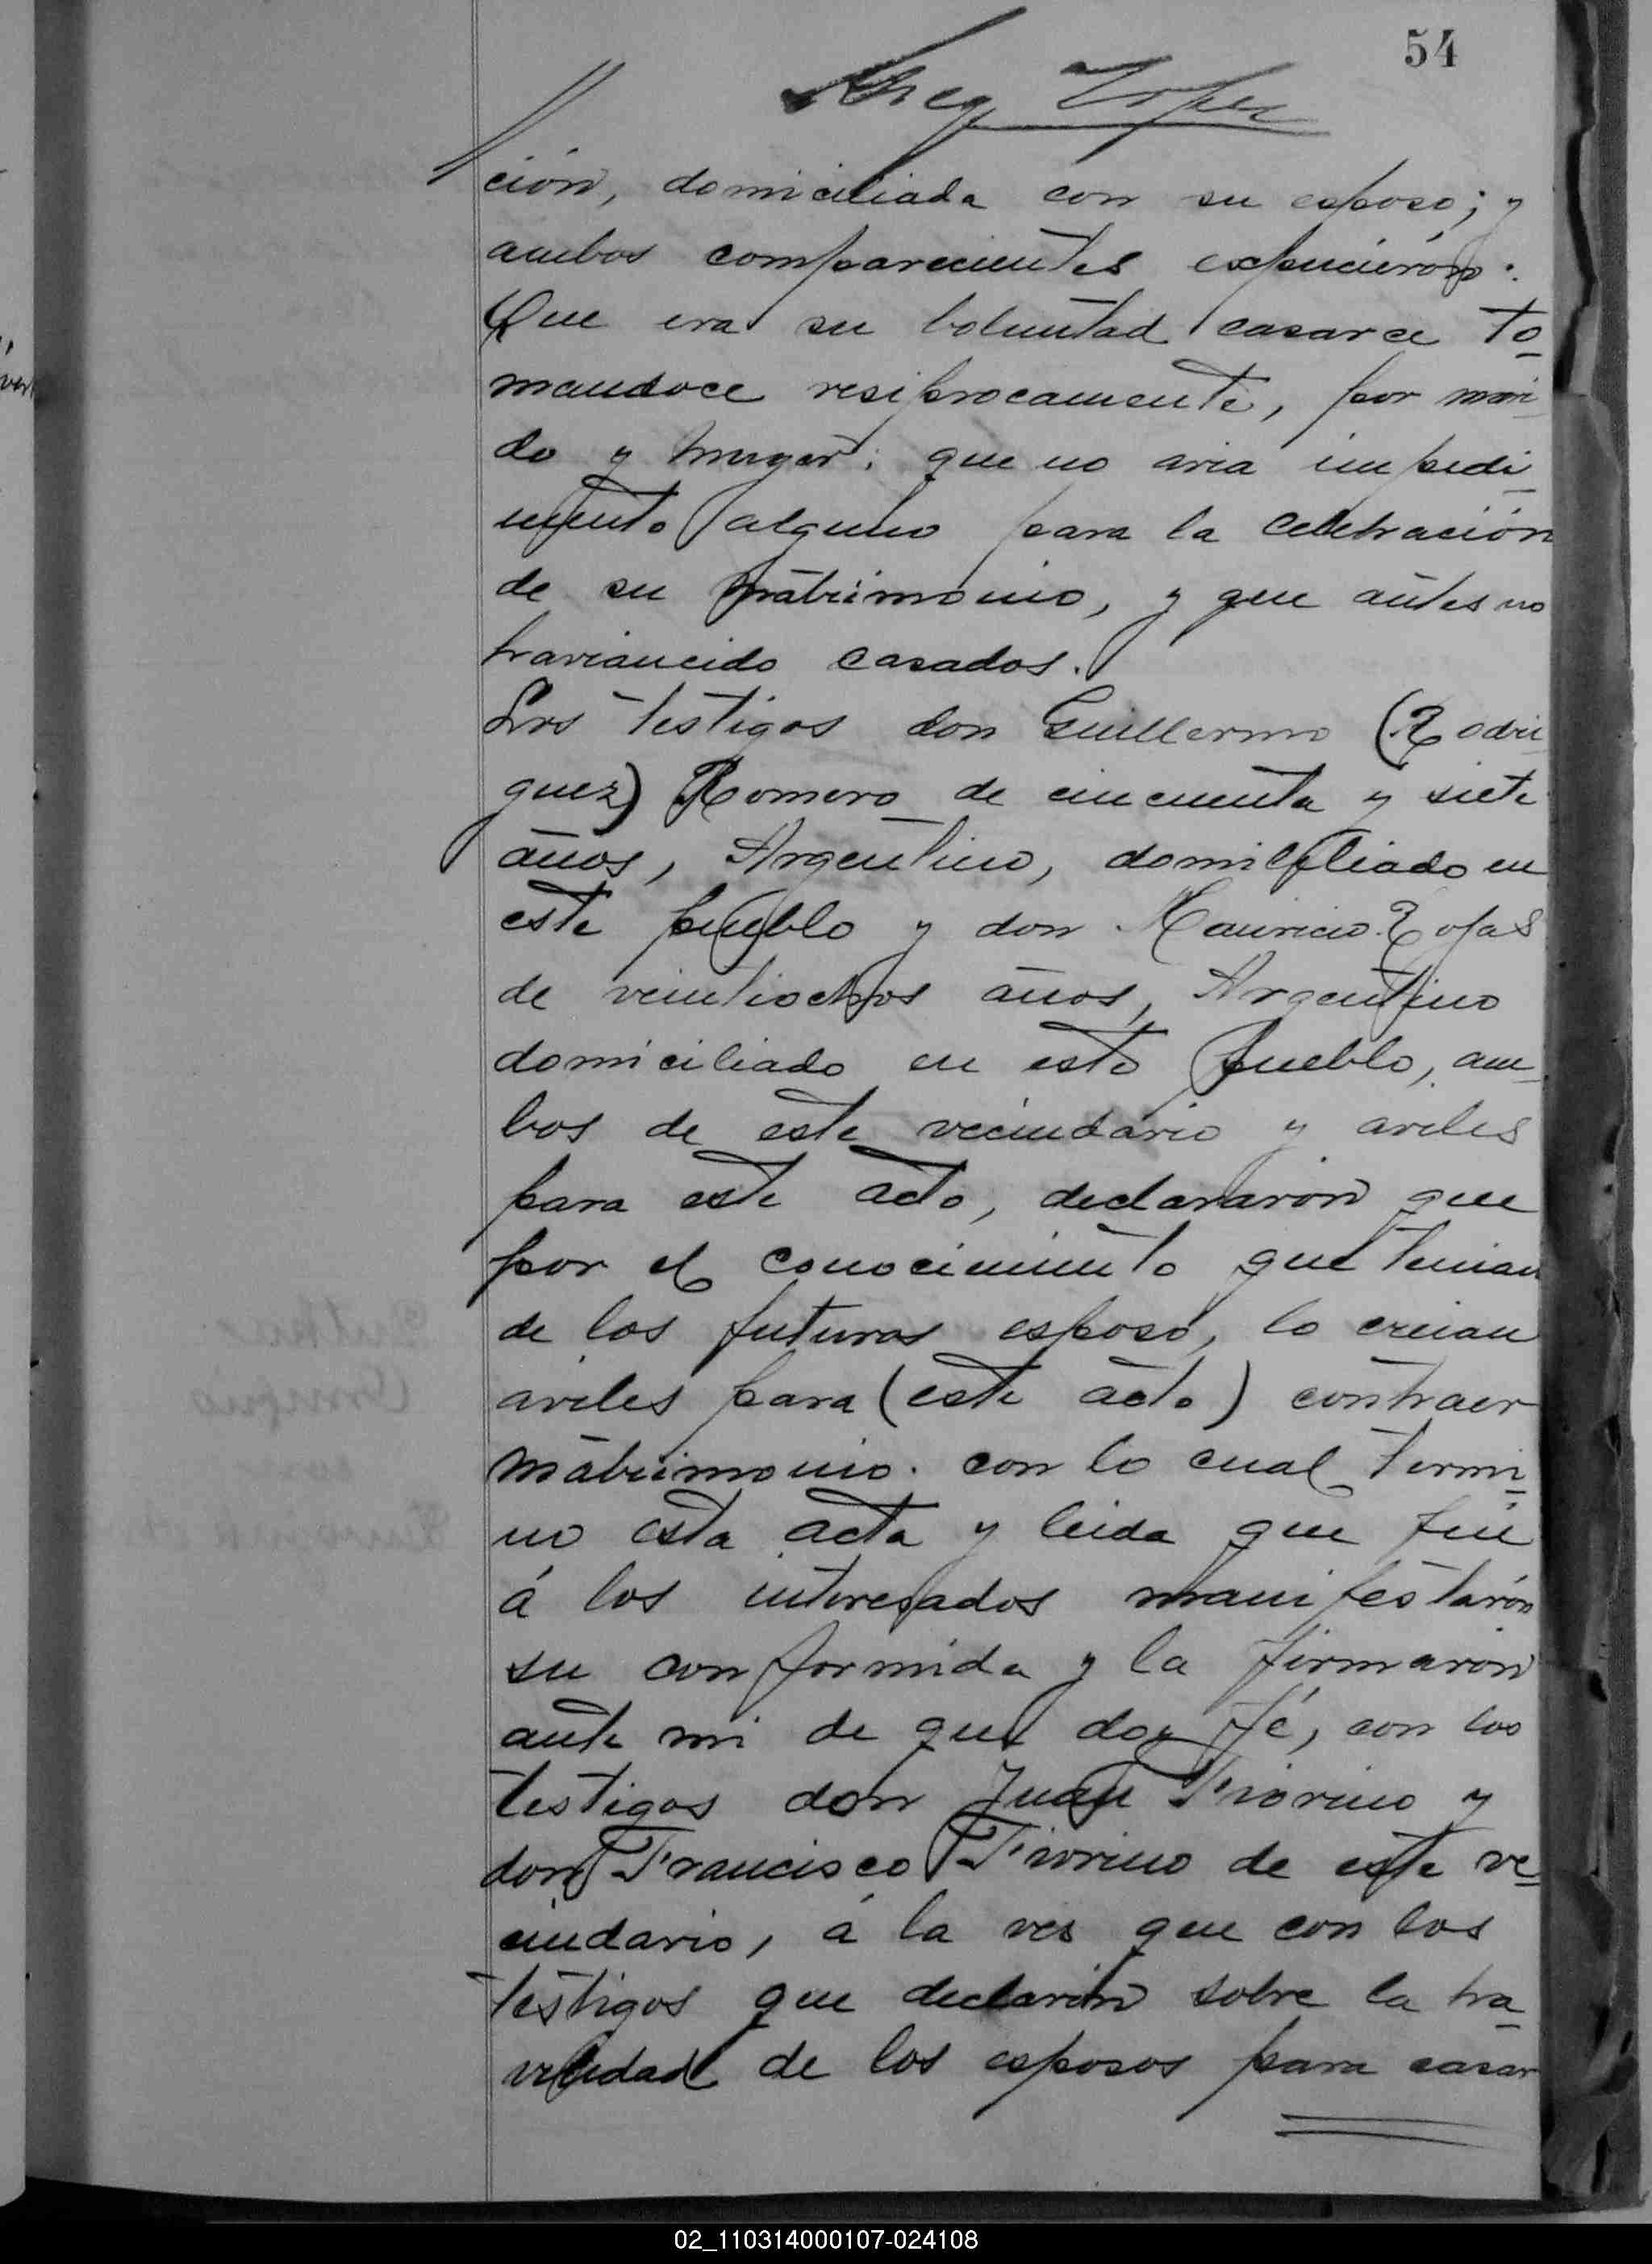 54
ción, domiciliada con su esposo; y
ambos comparecientes expucierón:
Que era su boluntad casarce to
mandoce resiprocamente, por mari
do y muger; que no avia impedi
mento alguno para la celebración
de su matrimonio, y que antes no
havian cido casados.
Los testigos don Guillermo (Rodri
guez) Romero de cincuenta y siete
años, Argentino, domiciliado en
este pueblo y don Mauricio Rojas
de veintiochos años, Argentino
domiciliado en este pueblo, am
bos de este vecindario y aviles
para este acto, declararón que
por el conocimiento que tenian
de los futuros esposo, lo creian
aviles para (este acto) contraer
matrimonio. con lo cual termi
no esta acta y leida que fué
á los interesados manifestarón
su conformida y la firmarón
ante mi de que doy fé, con los
testigos don Juan Fiorino y
don Francisco Fiorino de este ve
cindario, á la ves que con los
testigos que declarón sobre la ha
vilidad de los esposos para casar
02_110314000107-024108